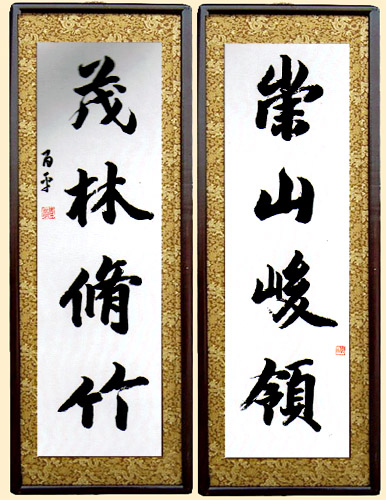 崇山峻領
茂林脩竹
百平